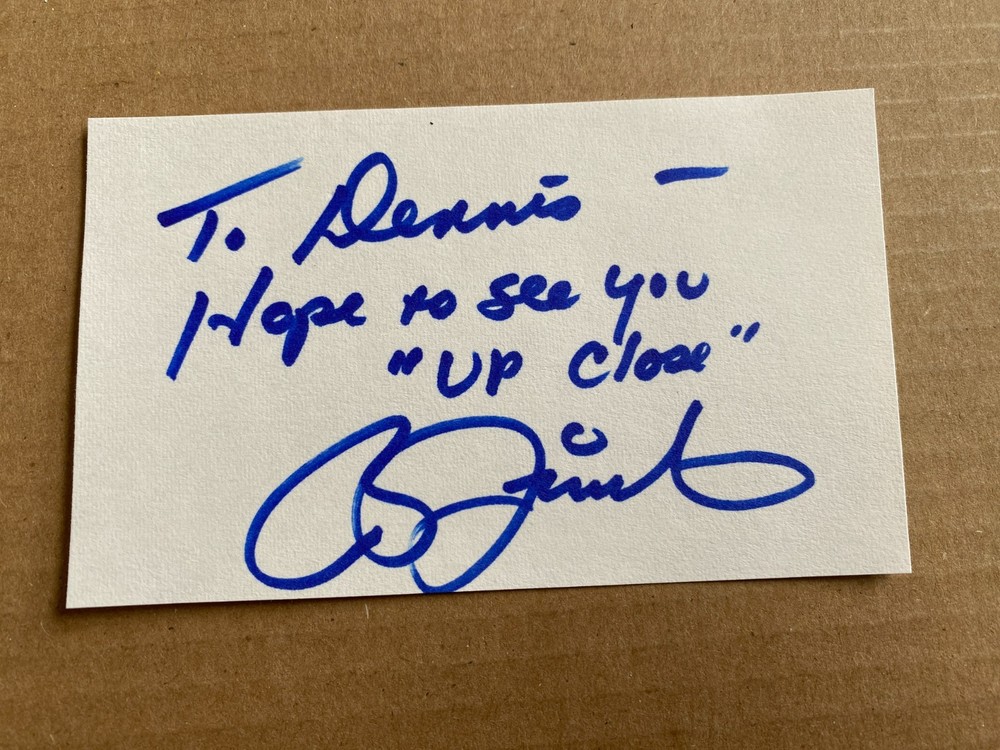 To Dennis —
Hope to see you
"UP Close"